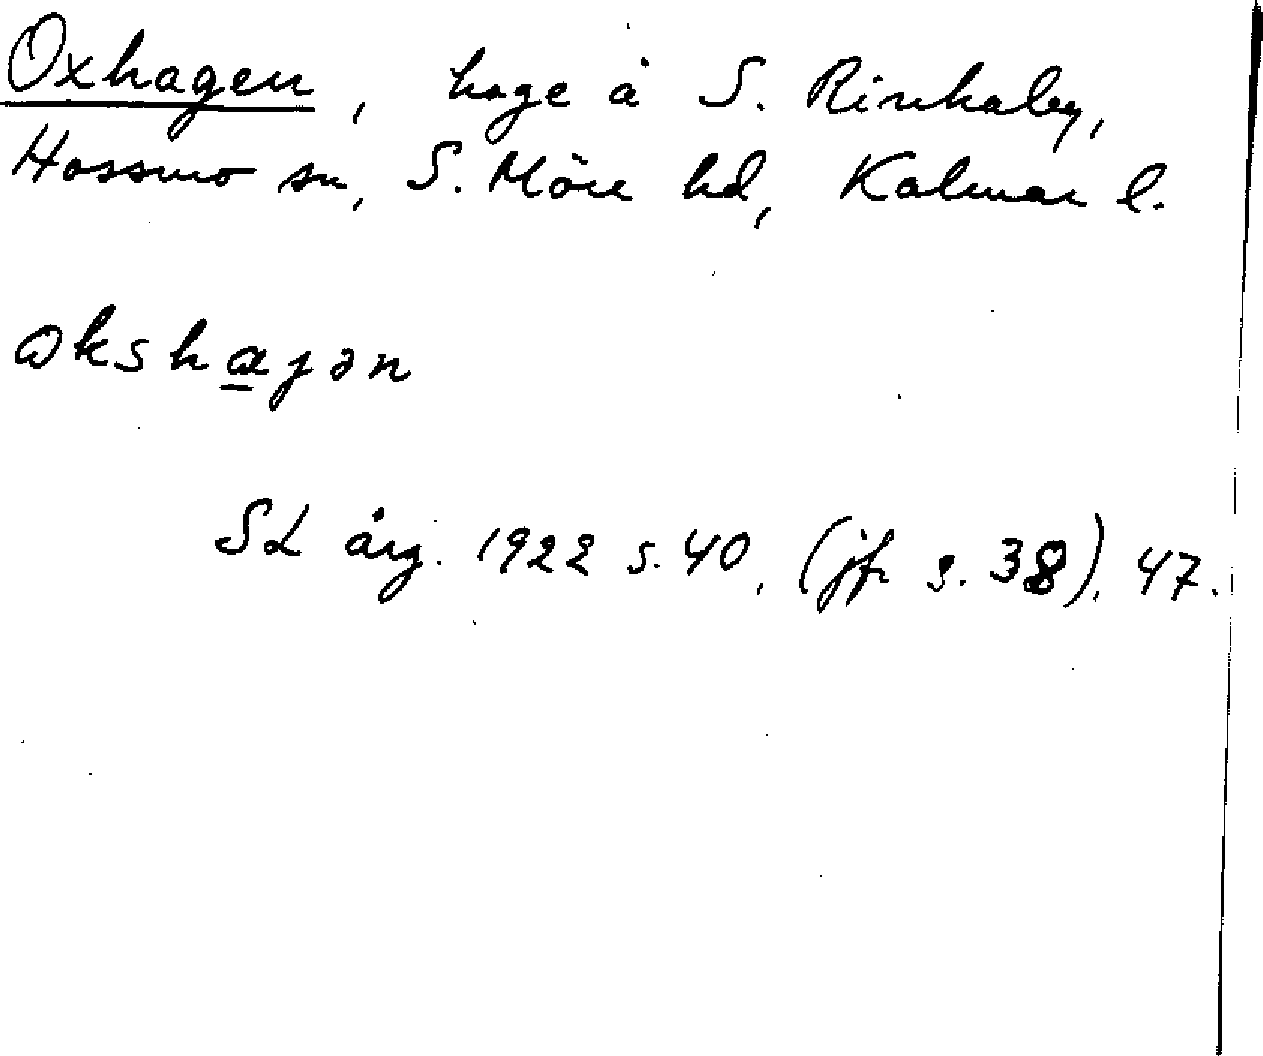 Oxhagen, hage å S. Rinkaby,
Hossmo sn, S. Möre hd, Kalmar l.
okshagən
SL årg. 1922 s. 40, (jfr s. 38), 47.